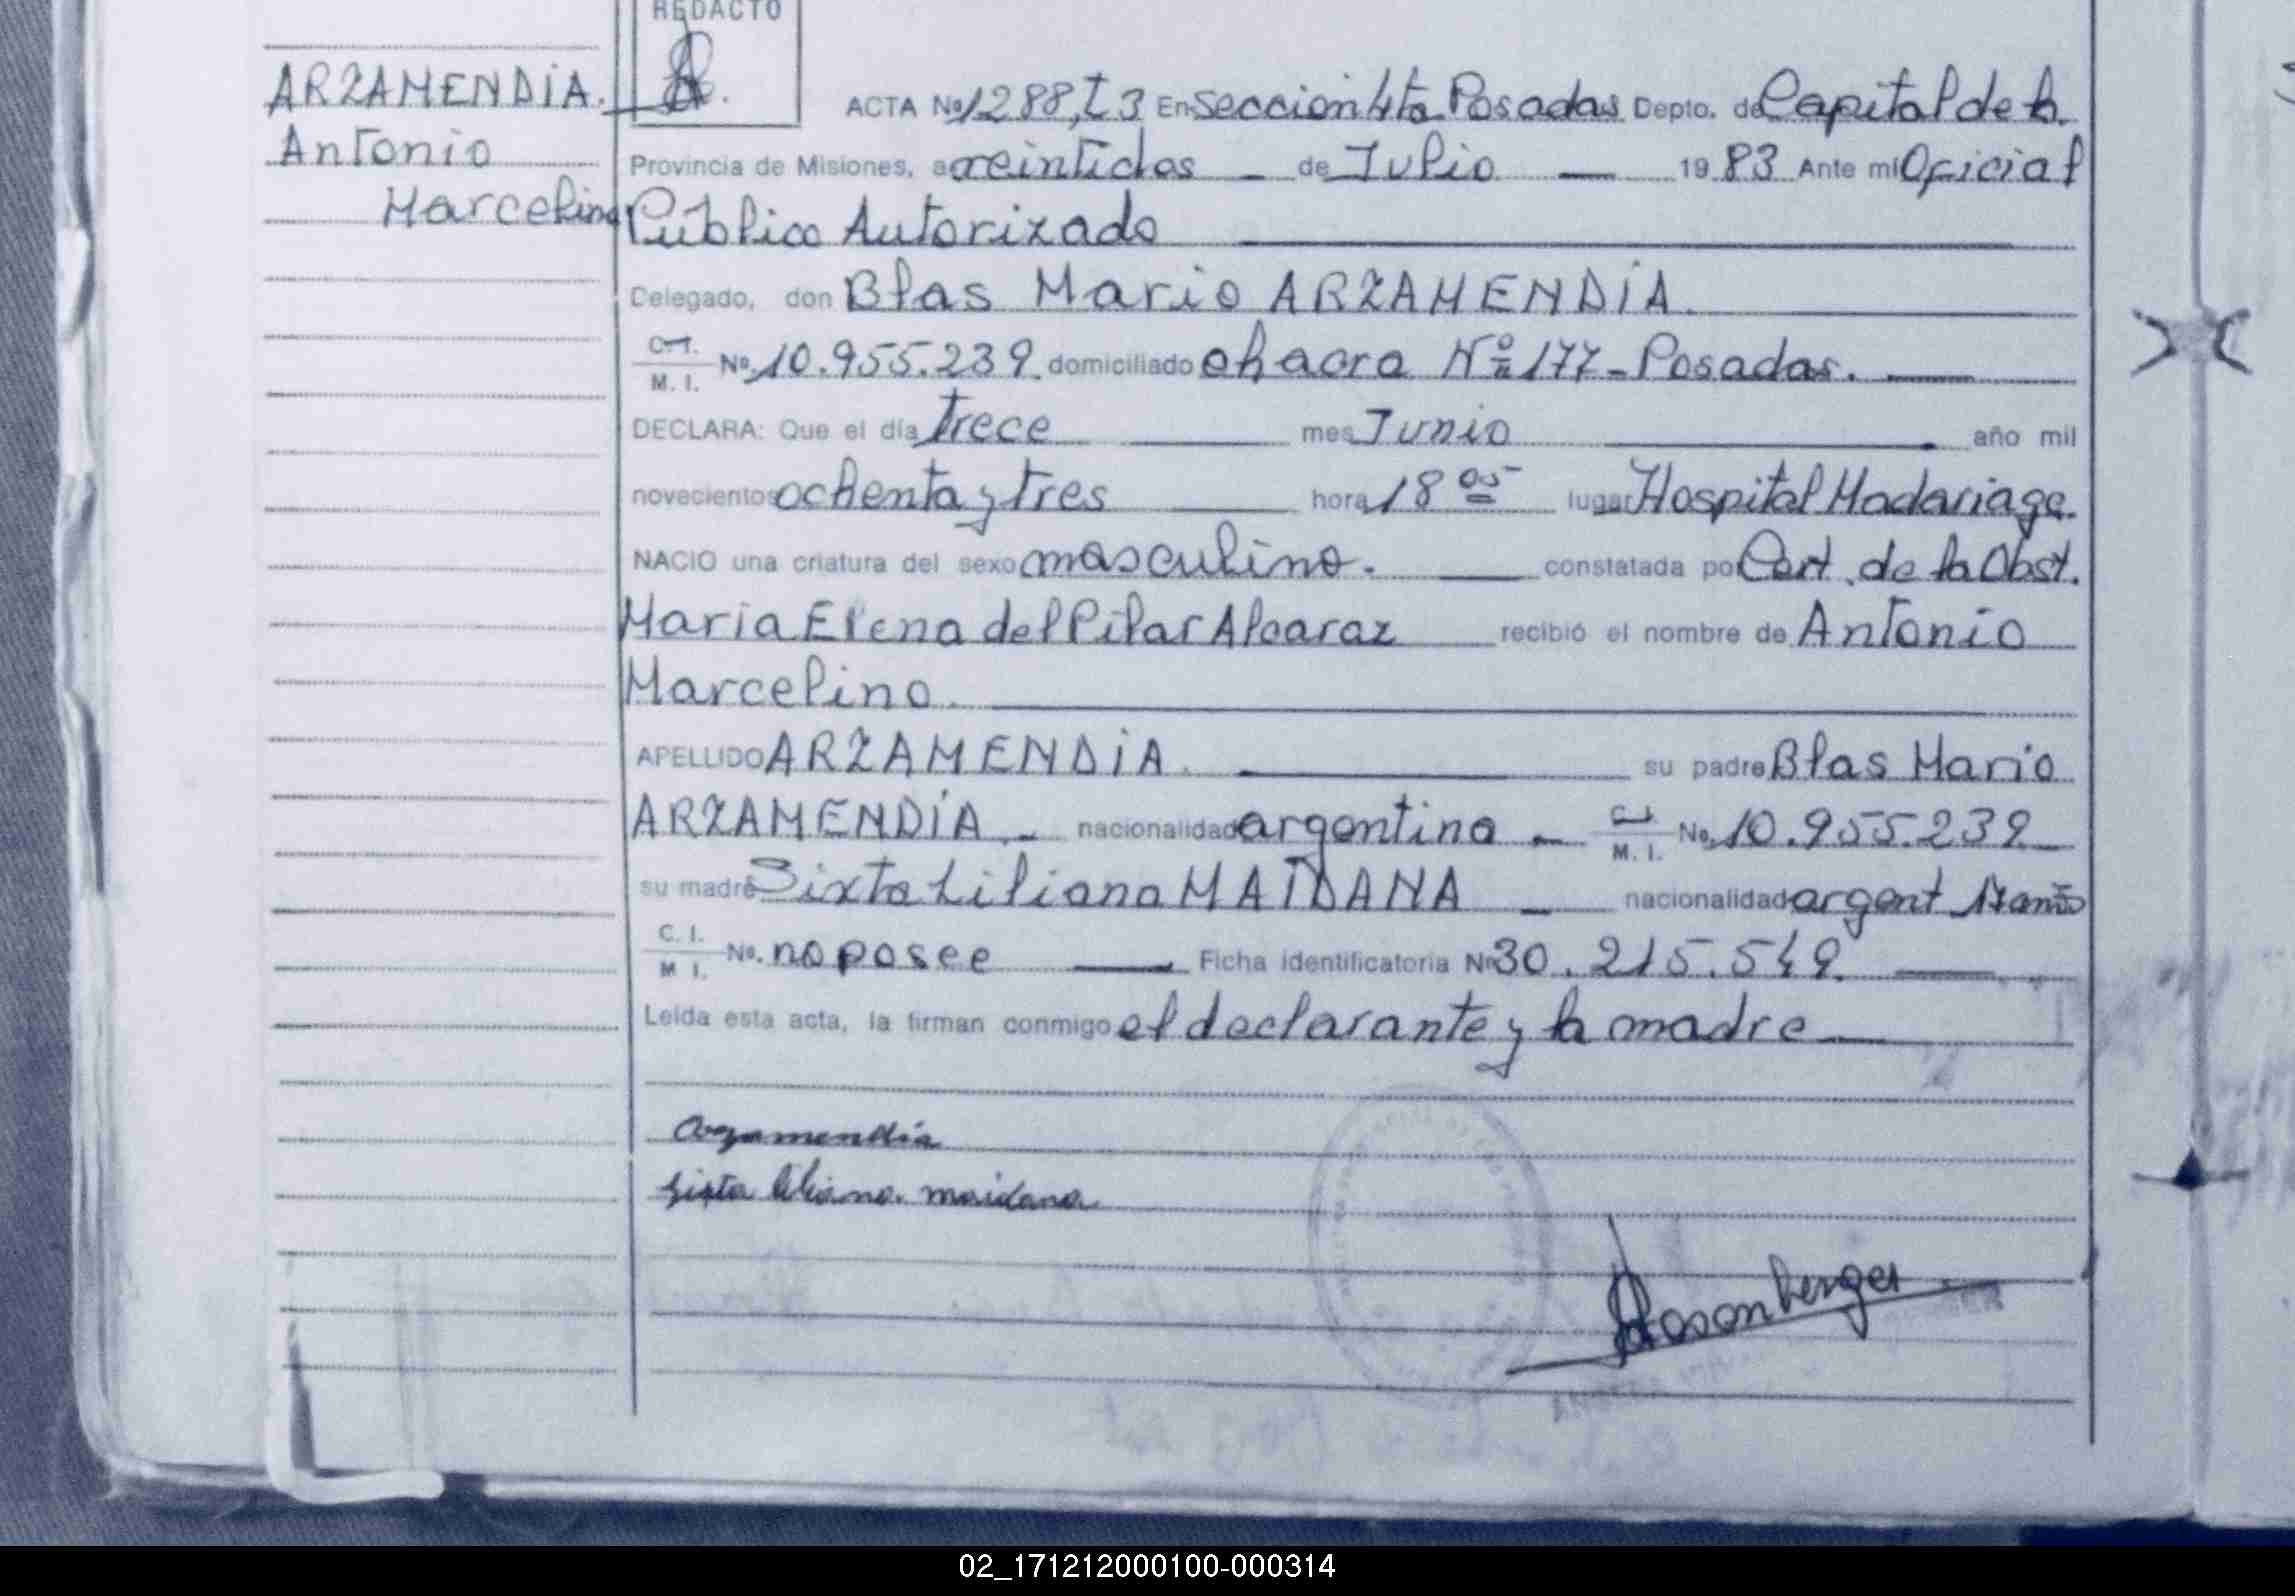 REDACTO
ARZAMENDÍA.
Antonio
Marcelino
ACTA Nº 1288, t 3 En Seccion 4ta Posadas Depto. de Capital de la
Provincia de Misiones, a veintidos de Julio 19 83 Ante mí Oficial
Público Autorizado
Delegado, don Blas Mario ARZAMENDÍA.
C. I. / M. I. Nº 10.955.239 domiciliado chacra Nº 177 - Posadas.
DECLARA: Que el día trece mes Junio año mil
novecientos ochenta y tres hora 18 05 lugar Hospital Madariaga.
NACIO una criatura del sexo masculino. constatada por Cert. de la Obst.
Maria Elena del Pilar Alcaraz recibió el nombre de Antonio
Marcelino.
APELLIDO ARZAMENDÍA. su padre Blas Mario
ARZAMENDÍA - nacionalidad argentina - C. I. / M. I. Nº 10.955.239
su madre Sixta Liliana MAIDANA - nacionalidad argent
C. I. / M I. Nº. no posee Ficha identificatoria Nº 30.215.549
Leída esta acta, la firman conmigo el declarante y la madre
Arzamendia
sixta liliana maidana
Rosenberger
02_171212000100-000314